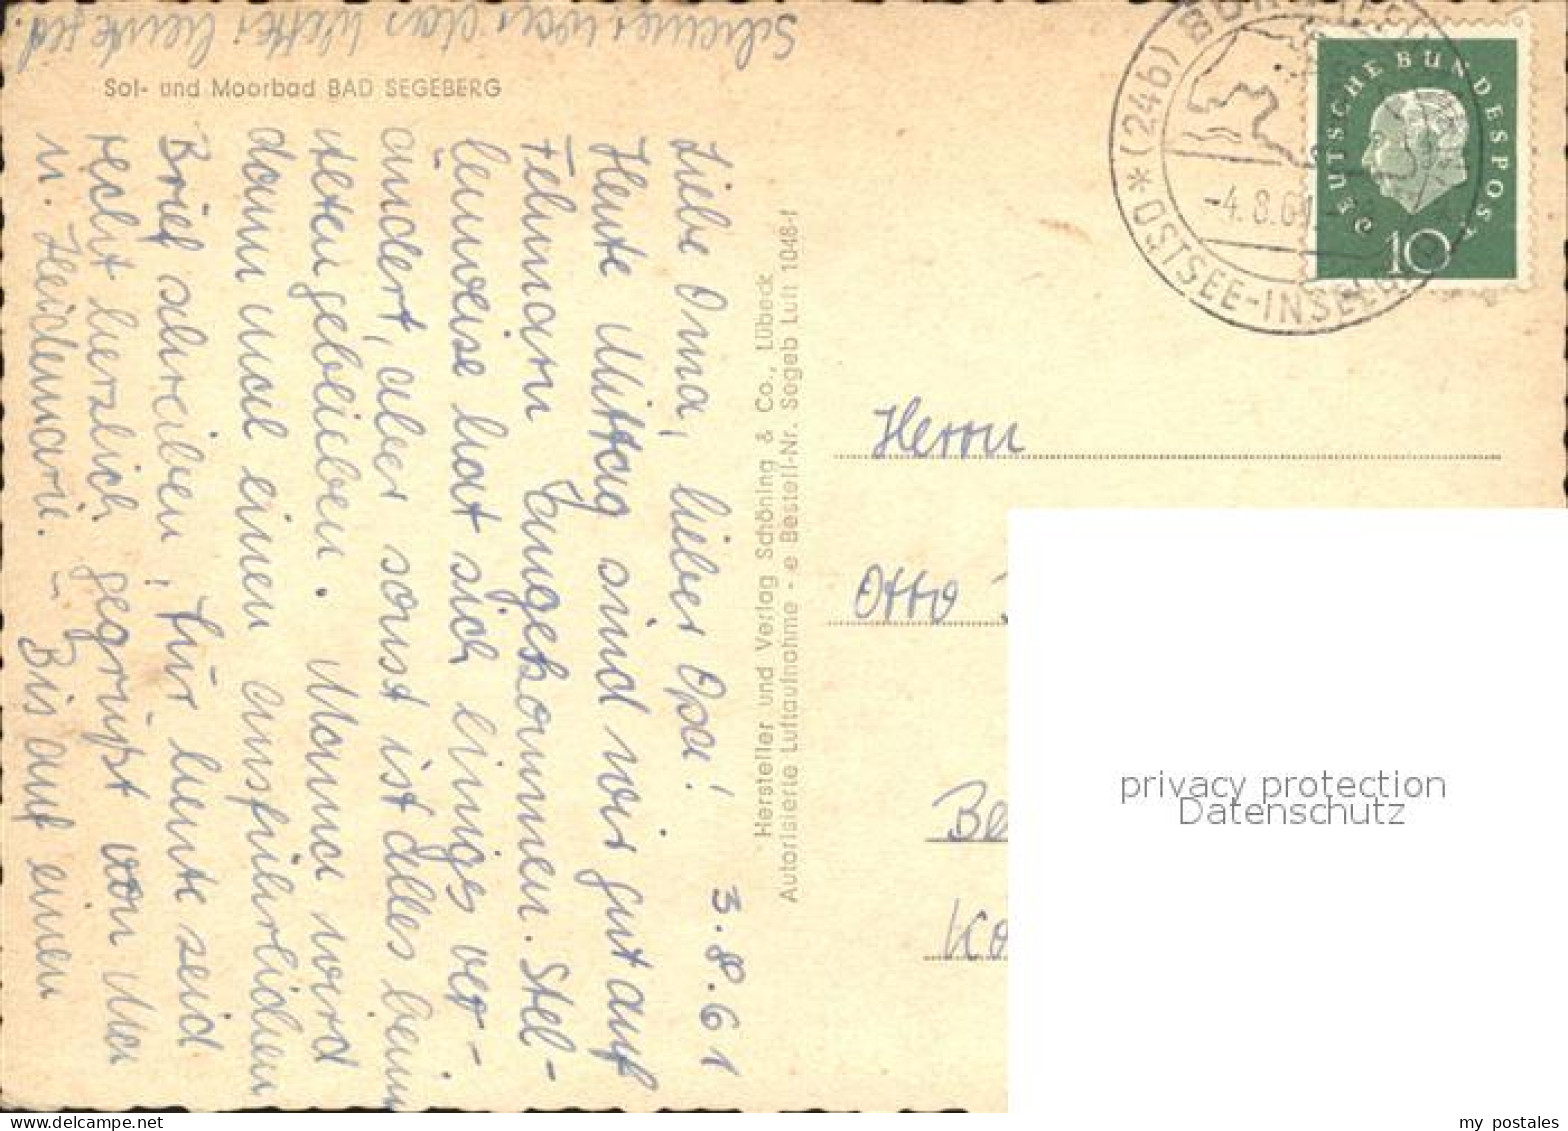 Sol- und Moorbad BAD SEGEBERG
3.8.61
Liebe Oma, lieber Opa!
Heute Mittag sind wir gut auf
Fehmarn angekommen. Stel-
lenweise hat sich einiges ver-
ändert, aber sonst ist alles beim
alten geblieben. Mama wird
dann mal einen ausführlichen
Brief schreiben, für heute seid
recht herzlich gegrüßt von
u. Heidemarie. – Bis auf einen
Schauer war das Wetter heute
Hersteller und Verlag Schöning & Co., Lübeck
Autorisierte Luftaufnahme - e Bestell-Nr. Segeb Luft 1048-1
(24b) BURG
-4.8.61
OSTSEE-INSEL
DEUTSCHE BUNDESPOST
10
Herrn
Otto
Be
Ko
privacy protection
Datenschutz
my postales